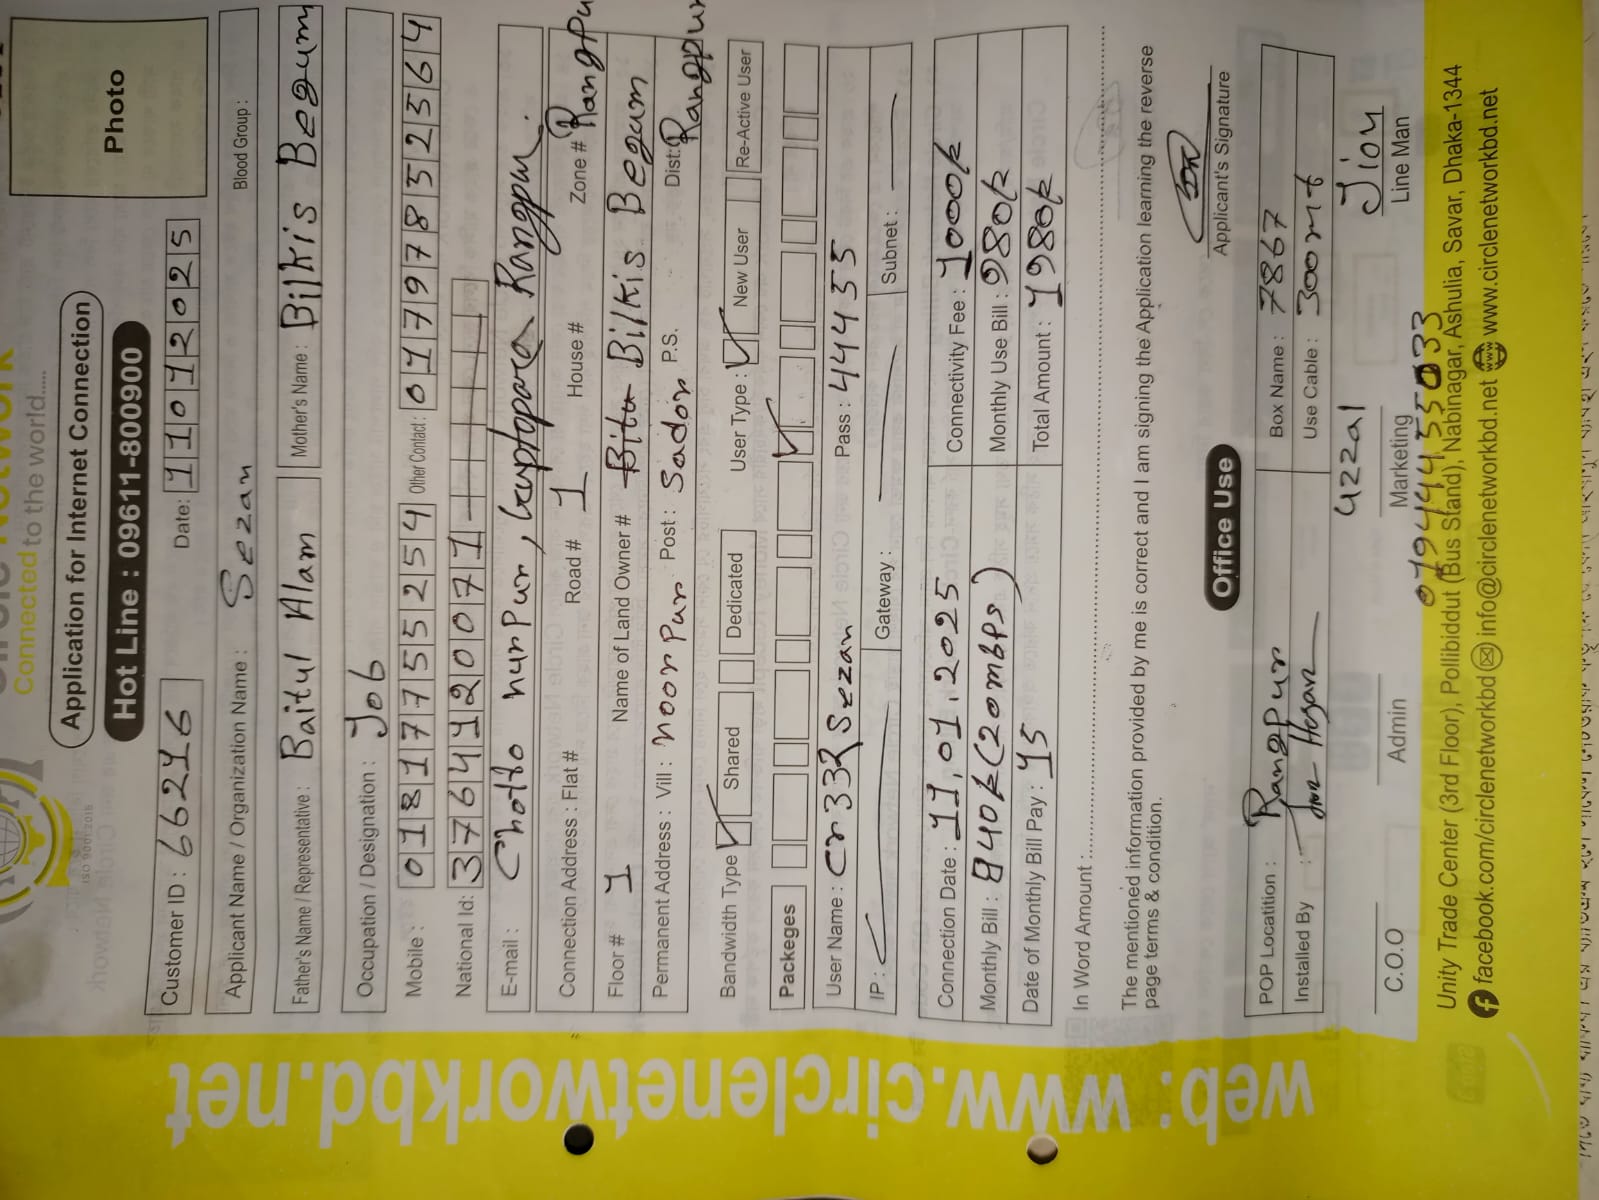 Connected to the world.....
Application for Internet Connection
Hot Line : 09611-800900
Photo
ISO 9001:2015
Customer ID : 66216
Date: 11012025
Applicant Name / Organization Name : Sezan
Blood Group :
Father's Name / Representative : Baitul Alam
Mother's Name : Bilkis Begum
Occupation / Designation : Job
Mobile : 01817755254 Other Contact : 01797852564
National Id: 3764120071
E-mail : Chotto nurpur, Rangpur.
Connection Address : Flat # Road # 1 House # Zone # Rangpu
Floor # 1 Name of Land Owner # Bilkis Begum
Permanent Address : Vill : noorpur Post : Sador P.S. Dist: Rangpur
Bandwidth Type ✓ Shared Dedicated User Type : ✓ New User Re-Active User
Packeges ✓
User Name : Sezan Pass : 444455
IP : Gateway : Subnet :
Connection Date : 11.01.2025 Connectivity Fee : 1000/-
Monthly Bill : 840/-(20mbps) Monthly Use Bill : 980/-
Date of Monthly Bill Pay : 15 Total Amount : 1980/-
In Word Amount :
The mentioned information provided by me is correct and I am signing the Application learning the reverse
page terms & condition.
Applicant's Signature
Office Use
POP Locatition : Rangpur Box Name : 7867
Installed By : Use Cable : 300mt
uzzal
C.O.O Admin Marketing Line Man
Unity Trade Center (3rd Floor), Pollibiddut (Bus Stand), Nabinagar, Ashulia, Savar, Dhaka-1344
facebook.com/circlenetworkbd info@circlenetworkbd.net www.circlenetworkbd.net
web: www.circlenetworkbd.net